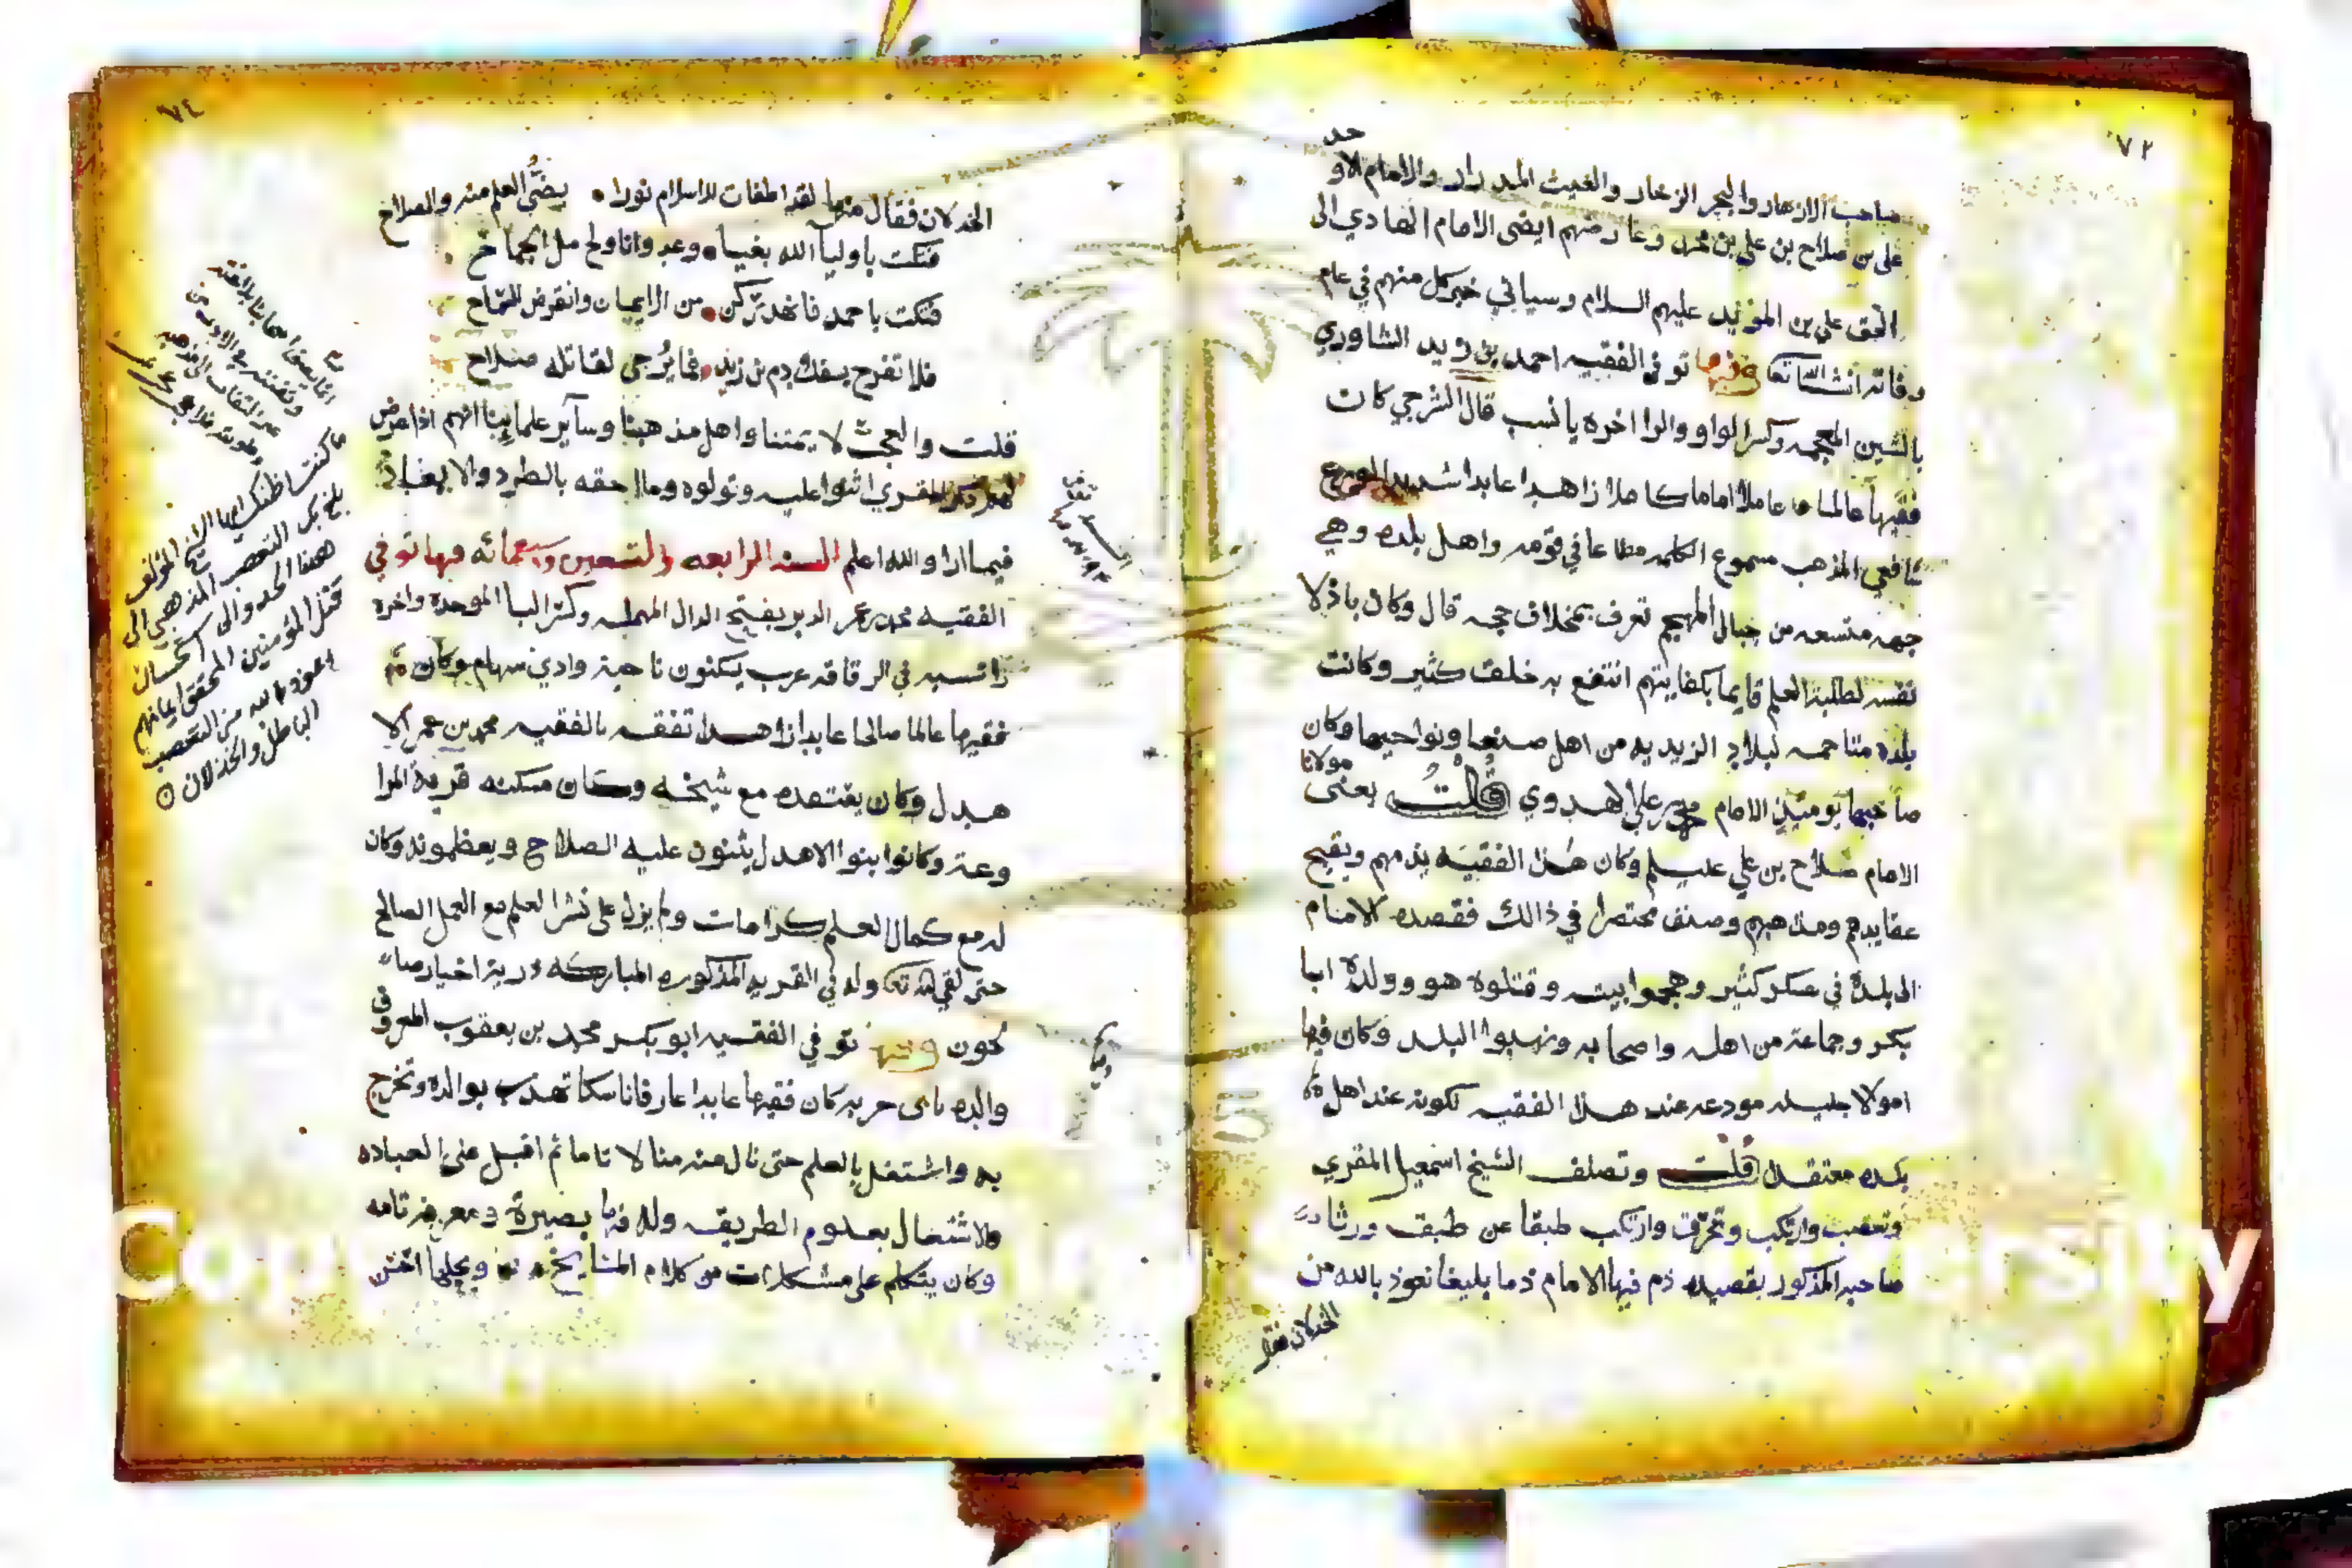 ٧٢
حد
صاحب الازهار والبحر الزخار والغيث المدرار والامام الاو
علي بن صلاح بن علي بن محمد وعارضهم ايضى الامام الهادي الى
الحق علي بن المؤيد عليهم السلام وسياتي خبر كل منهم في عام
وفاته انشا الله تعا وفيها توفى الفقيه احمد بن زيد الشاوري
بالشين المعجمه وكسر الواو والرا اخره يا نسب قال الشرجي كان
فقيها عالما عاملا اماما كاملا زاهدا عابدا شديد الورع
شافعي المذهب مسموع الكلمه مطاعا في قومه واهل بلده وهي
جهه متسعه من جبال المهجم تعرف بمخلاف حجه قال وكان باذلا
نفسه لطلبة العلم قايما بكفايتهم انتفع به خلق كثير وكانت
بلده متاخمه لبلاد الزيديه من اهل صنعا ونواحيها وكان
مولانا
صاحبها يومئذ الامام محمد بن علي الهدوي قلت يعنى
الامام صلاح بن علي عليلم وكان هذا الفقيه يذمهم ويقبح
عقايدهم ومذهبهم وصنف مختصرا في ذالك فقصده الامام
الى بلده في عسكر كثير وهجموا بيته وقتلوه هو وولده ابا
بكر وجماعة من اهله واصحابه ونهبوا البلد وكان فيها
اموالا جليله مودعه عند هذا الفقيه لكونه عند اهل
بلده معتقد قلت وتصلف الشيخ اسمعيل المقري
وتعصب وارتكب وتحرق وارتكب طبقا عن طبق ورثا
صاحبه المذكور بقصيده ذم فيها الامام ذما بليغا نعوذ بالله من
الخذلان فقال
٧٤
الخذلان فقال منها لقد اطفات للاسلام نورا . يضئ العلم منه والصلاح
فتكت باوليا الله بغيا . وعدوانا ولج بك الجماح
فتكت باحمد فانهد ركن . من الايمان وانقرض السماح
فلا تفرح بسفك دم بن زيد . فما يرجى لقاتله صلاح
قلت والعجب لائمتنا واهل مذهبنا وساير علماينا انهم اذا عرض
لهم ذكر المقري اثنوا عليه وتولوه وما احقه بالطرد والابعاد
فيما ارا والله اعلم السنه الرابعه والتسعين وسبعمائه فيها توفي
الفقيه محمد بن عمر الدبر بفتح الدال المهمله وكسر البا الموحده واخره
را نسبه في الرقاقه عرب يسكنون ناحية وادي سهام وكان
فقيها عالما صالحا عابدا زاهدا تفقه بالفقيه محمد بن عمر الا
هدل وكان يقتصده مع شيخه وكان مسكنه قرية المرا
وعة وكانوا بنوا الاهدل يثنون عليه الصلاح ويعظمونه وكان
له مع كمال العلم كرامات ولم يزل على نشر العلم مع العمل الصالح
حتى لقي الله تعا وله في القريه المذكوره المباركه ذرية اخيار صا
لحون وفيها توفي الفقيه ابو بكر محمد بن يعقوب المعروف
والده بابى حربه كان فقيها عابدا عارفا ناسكا تهذب بوالده وتخرج
به واشتغل بالعلم حتى نال منه منالا تاما ثم اقبل على العباده
والاشتغال بعلوم الطريقه وله فيها بصيرة ومعرفة تامه
وكان يتكلم على مشكلات من كلام المشايخ ويحلها احسن
ما كنت اظنك ايها الاخ المؤلف
بلغ بك التعصب المذهبي الى
هذا الحد والى استحسان
قتل المؤمنين المحقق ايمانهم
نعوذ بالله من التعصب
الباطل والخذلان